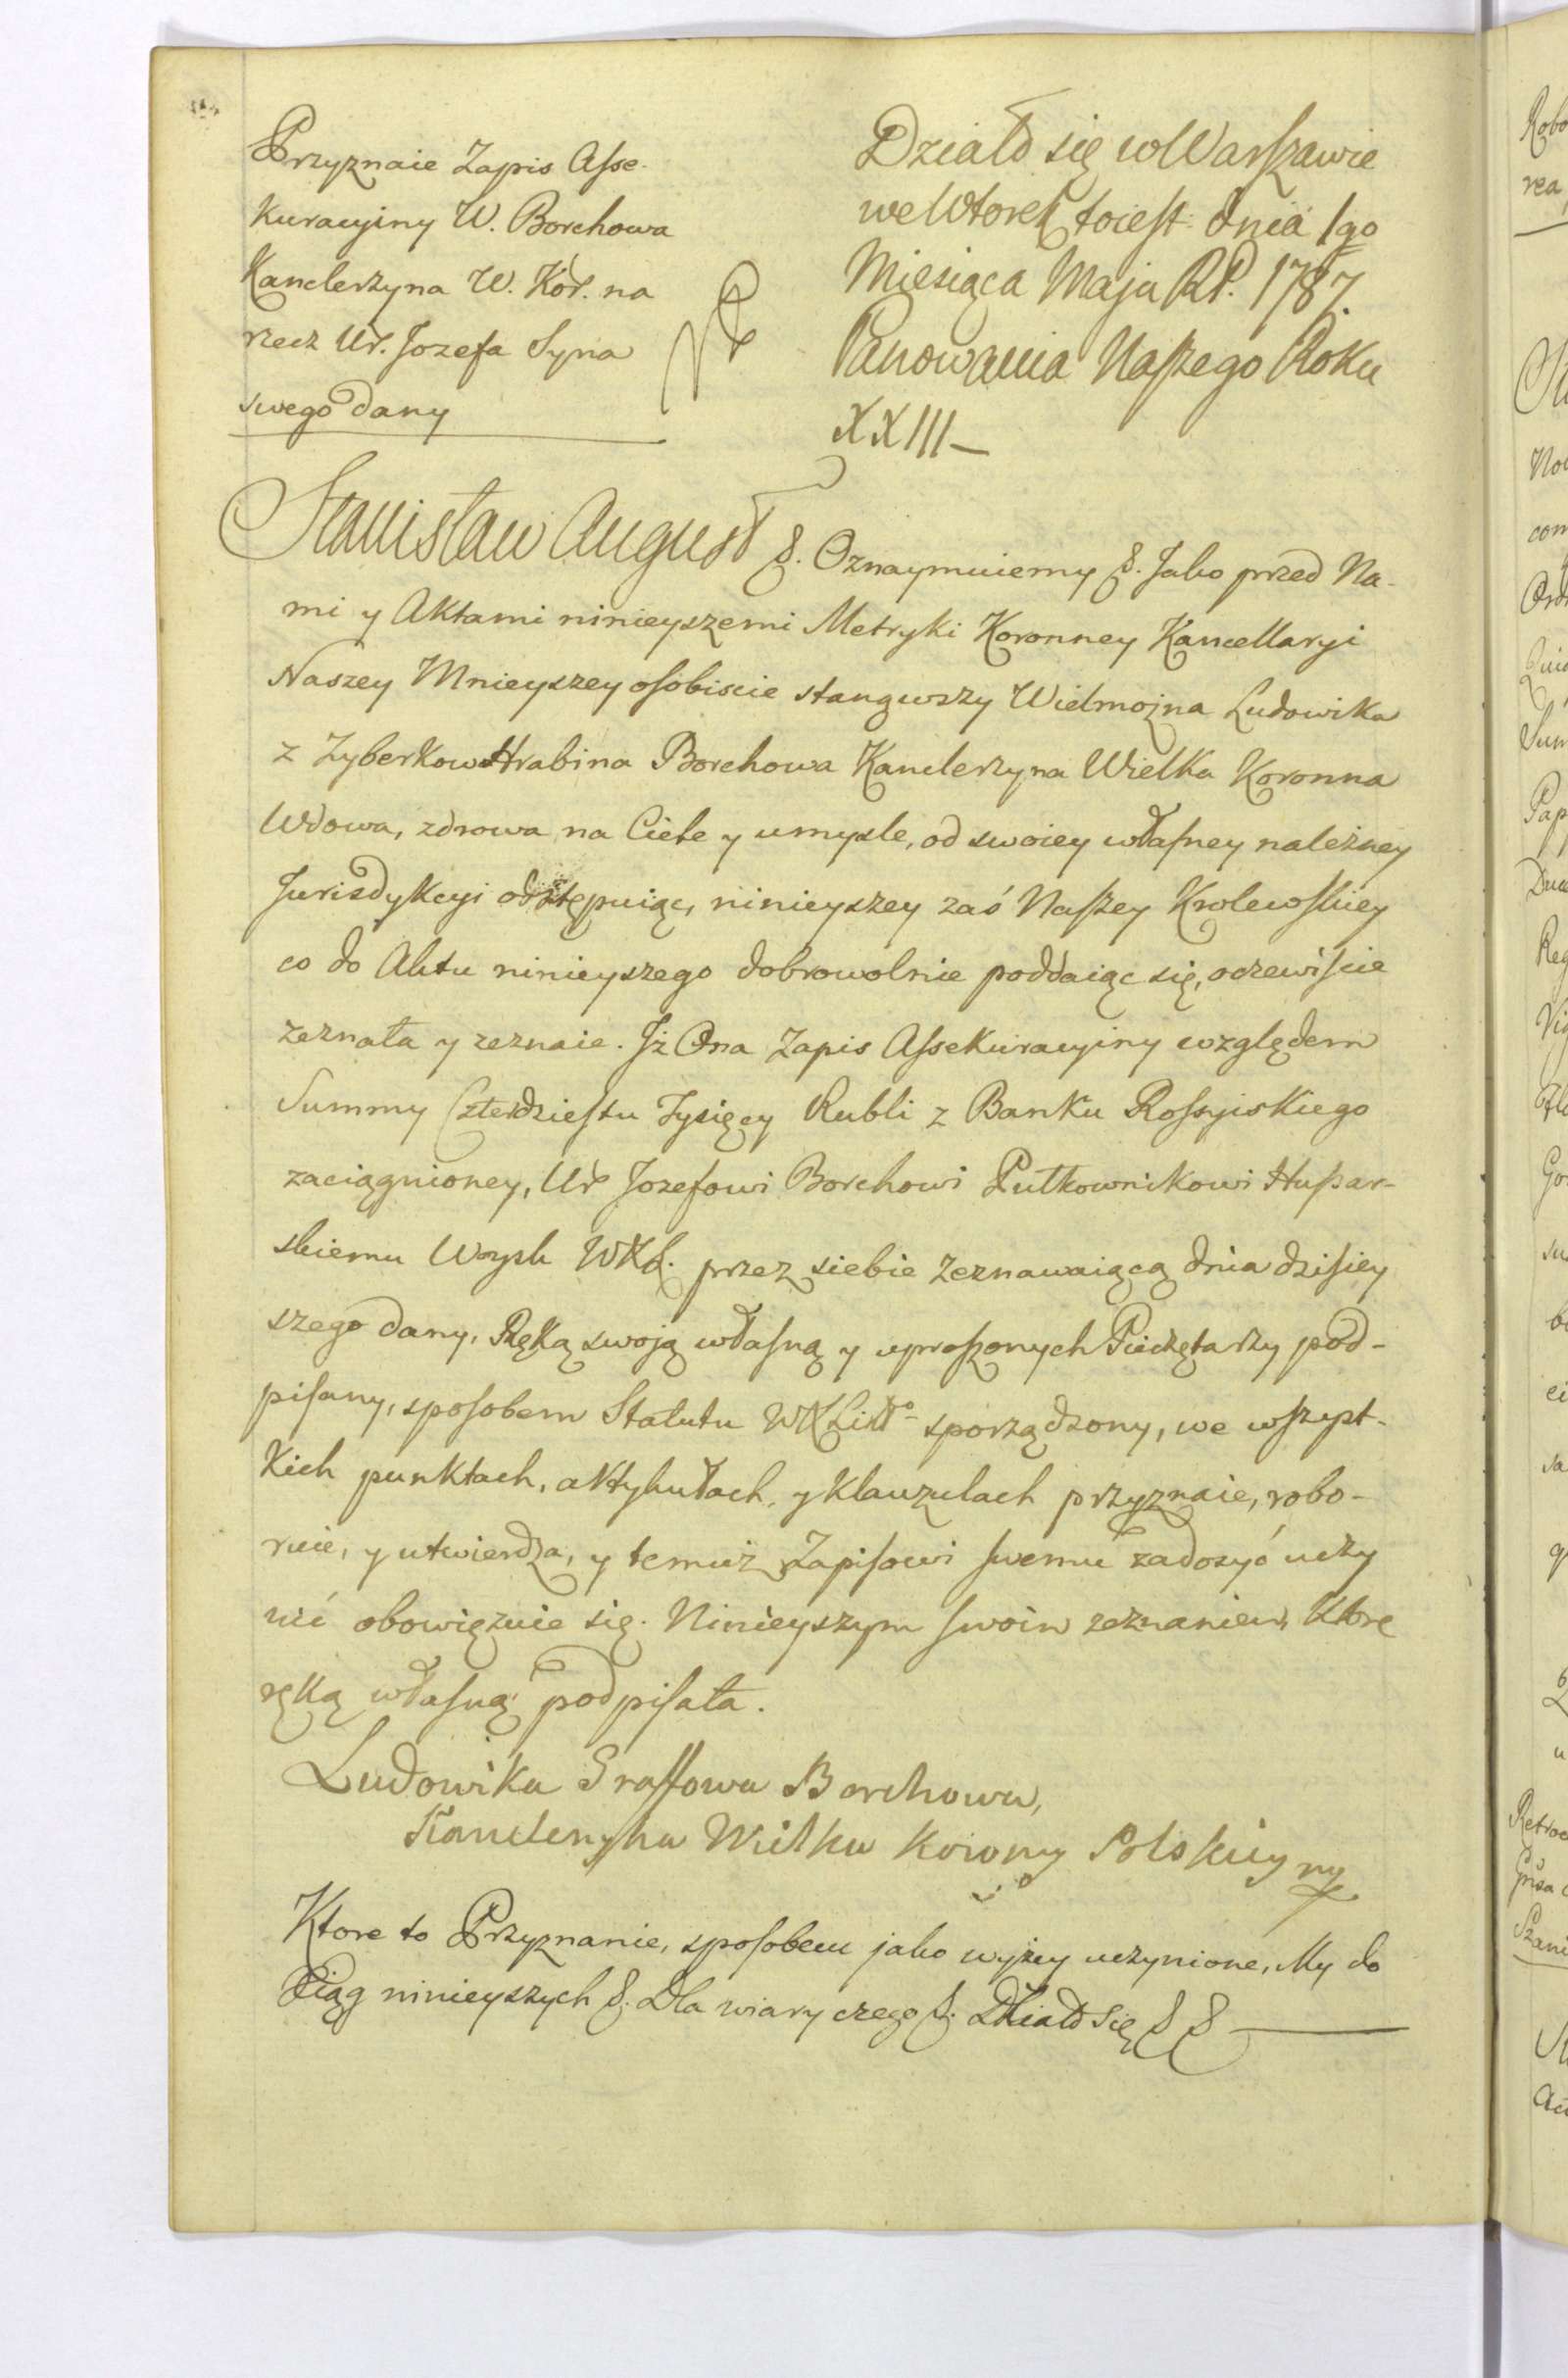 Przyznaie Zapis Asse-
kuracyiny W. Borchowa
Kanclerzyna W. Kor. na
rzecz Ur. Jozefa Syna
swego dany
Działo się w Warszawie
we Wtorek to iest dnia 1go
Miesiąca Maja RP. 1787.
Panowania Naszego Roku
XXIII
Stanisław August &. Oznaymuiemy &. Jako przed Na-
mi y Aktami ninieyszemi Metryki Koronney Kancellaryi
Naszey Mnieyszey osobiscie stanąwszy Wielmożna Ludowika
z Zyberkow Hrabina Borchowa Kanclerzyna Wielka Koronna
Wdowa, zdrowa na Ciele y umysle, od swoiey własney należney
Jurisdykcyi odstępuiąc, ninieyszey zaś Naszey Krolewskiey
co do Aktu ninieyszego dobrowolnie poddaiąc się, oczewiscie
zeznała y zeznaie. Jż Ona Zapis Assekuracyiny względem
Summy Czterdziestu Tysięcy Rubli z Banku Rossyiskiego
zaciągnioney, Ur Jozefowi Borchowi Pułkownikowi Hussar-
skiemu Woysk WXL. przez siebie Zeznawaiącą dnia dzisiey
szego dany, Ręką swoją własną y uproszonych Pieczętarzy pod-
pisany, sposobem Statutu WXLittº sporządzony, we wszyst-
kich punktach, aktykułach, y klauzulach przyznaie, robo-
ruie, y utwierdza, y temuż Zapisowi swemu zadosyć uczy
nić obowięzuie się. Ninieyszym swoim zeznaniem, Ktore
ręką własną podpisała.
Ludowika Graffowa Borchowa,
Kanclerzyna Wielka Korony Polskiey
Ktore to Przyznanie, sposobem jako wyżey uczynione, My do
Xiąg ninieyszych &. Dla wiary czego &. Działo się & &